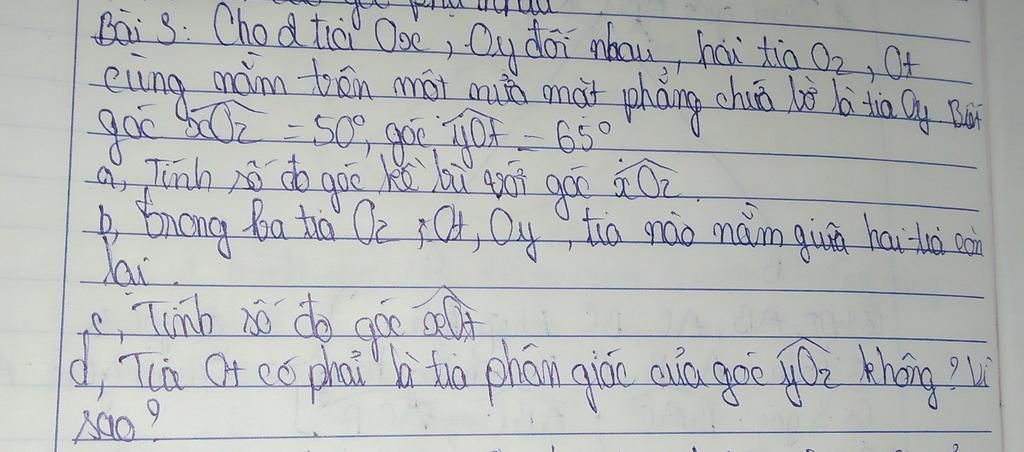 Bài 3: Cho d tia Ox, Oy đối nhau, hai tia Oz, Ot
cùng nằm trên một nửa mặt phẳng chứa bờ là tia Oy Biết
góc xOz = 50°, góc yOt = 65°
a, Tính số đo góc kề bù với góc xOz
b, trong ba tia Oz, Ot, Oy, tia nào nằm giữa hai tia còn
lại.
c, Tính số đo góc xOt
d, Tia Ot có phải là tia phân giác của góc yOz không? Vì
sao?